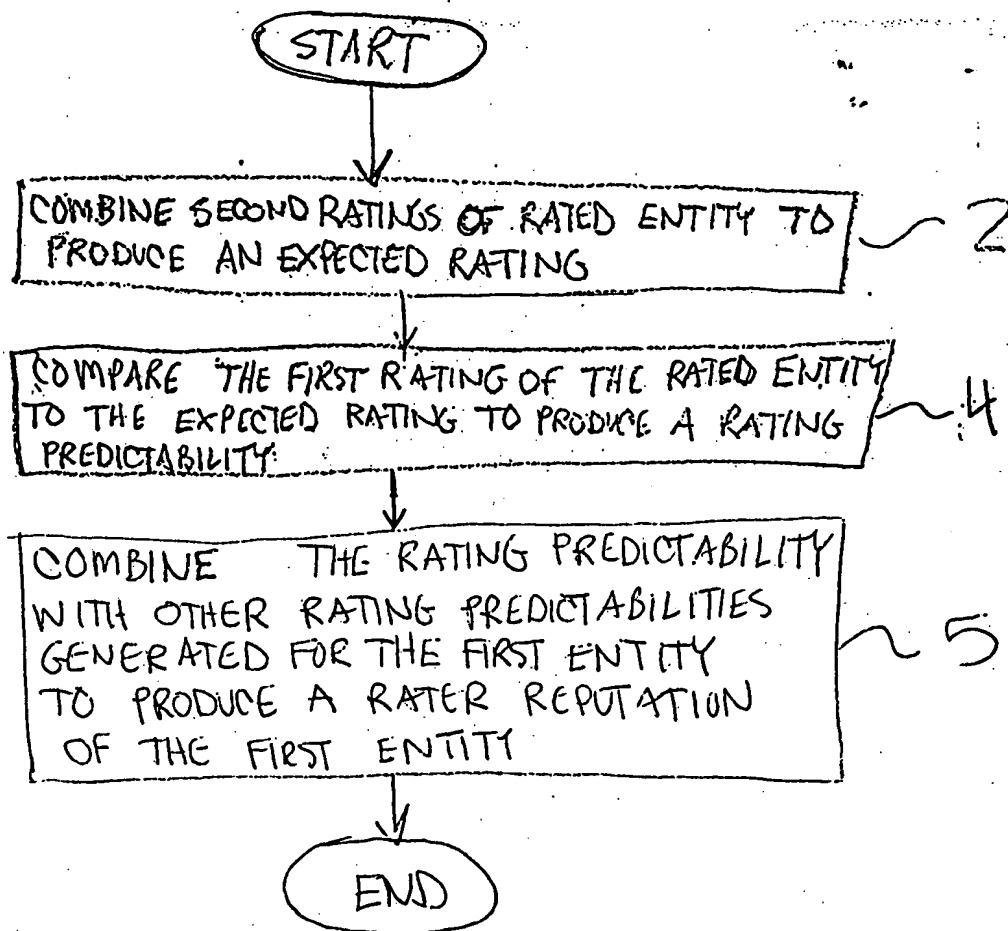 START
COMBINE SECOND RATINGS OF RATED ENTITY TO
PRODUCE AN EXPECTED RATING
2
COMPARE THE FIRST RATING OF THE RATED ENTITY
TO THE EXPECTED RATING TO PRODUCE A RATING
PREDICTABILITY
4
COMBINE THE RATING PREDICTABILITY
WITH OTHER RATING PREDICTABILITIES
GENERATED FOR THE FIRST ENTITY
TO PRODUCE A RATER REPUTATION
OF THE FIRST ENTITY
5
END